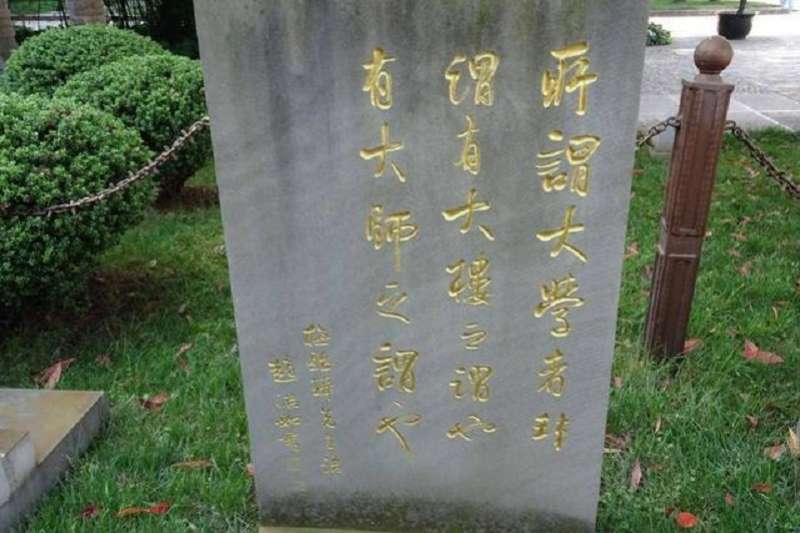 所謂大學者非
謂有大樓之謂也
有大師之謂也
梅貽琦先生語
趙浩如書